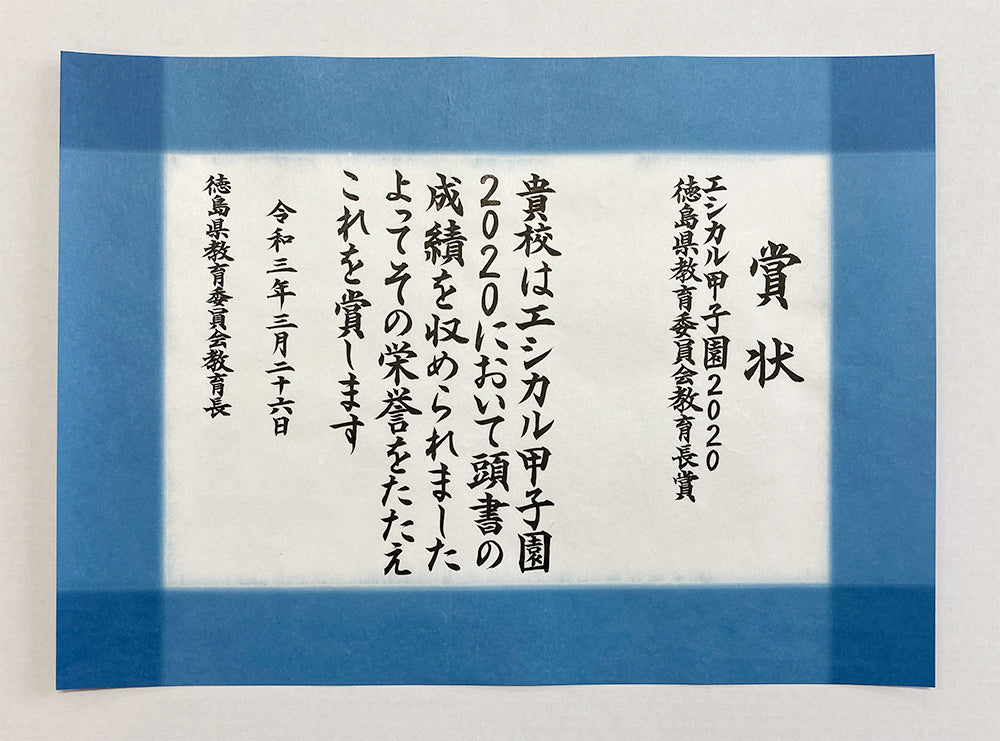 賞状
エシカル甲子園2020
徳島県教育委員会教育長賞
貴校はエシカル甲子園
2020において頭書の
成績を収められました
よってその栄誉をたたえ
これを賞します
令和三年三月二十六日
徳島県教育委員会教育長